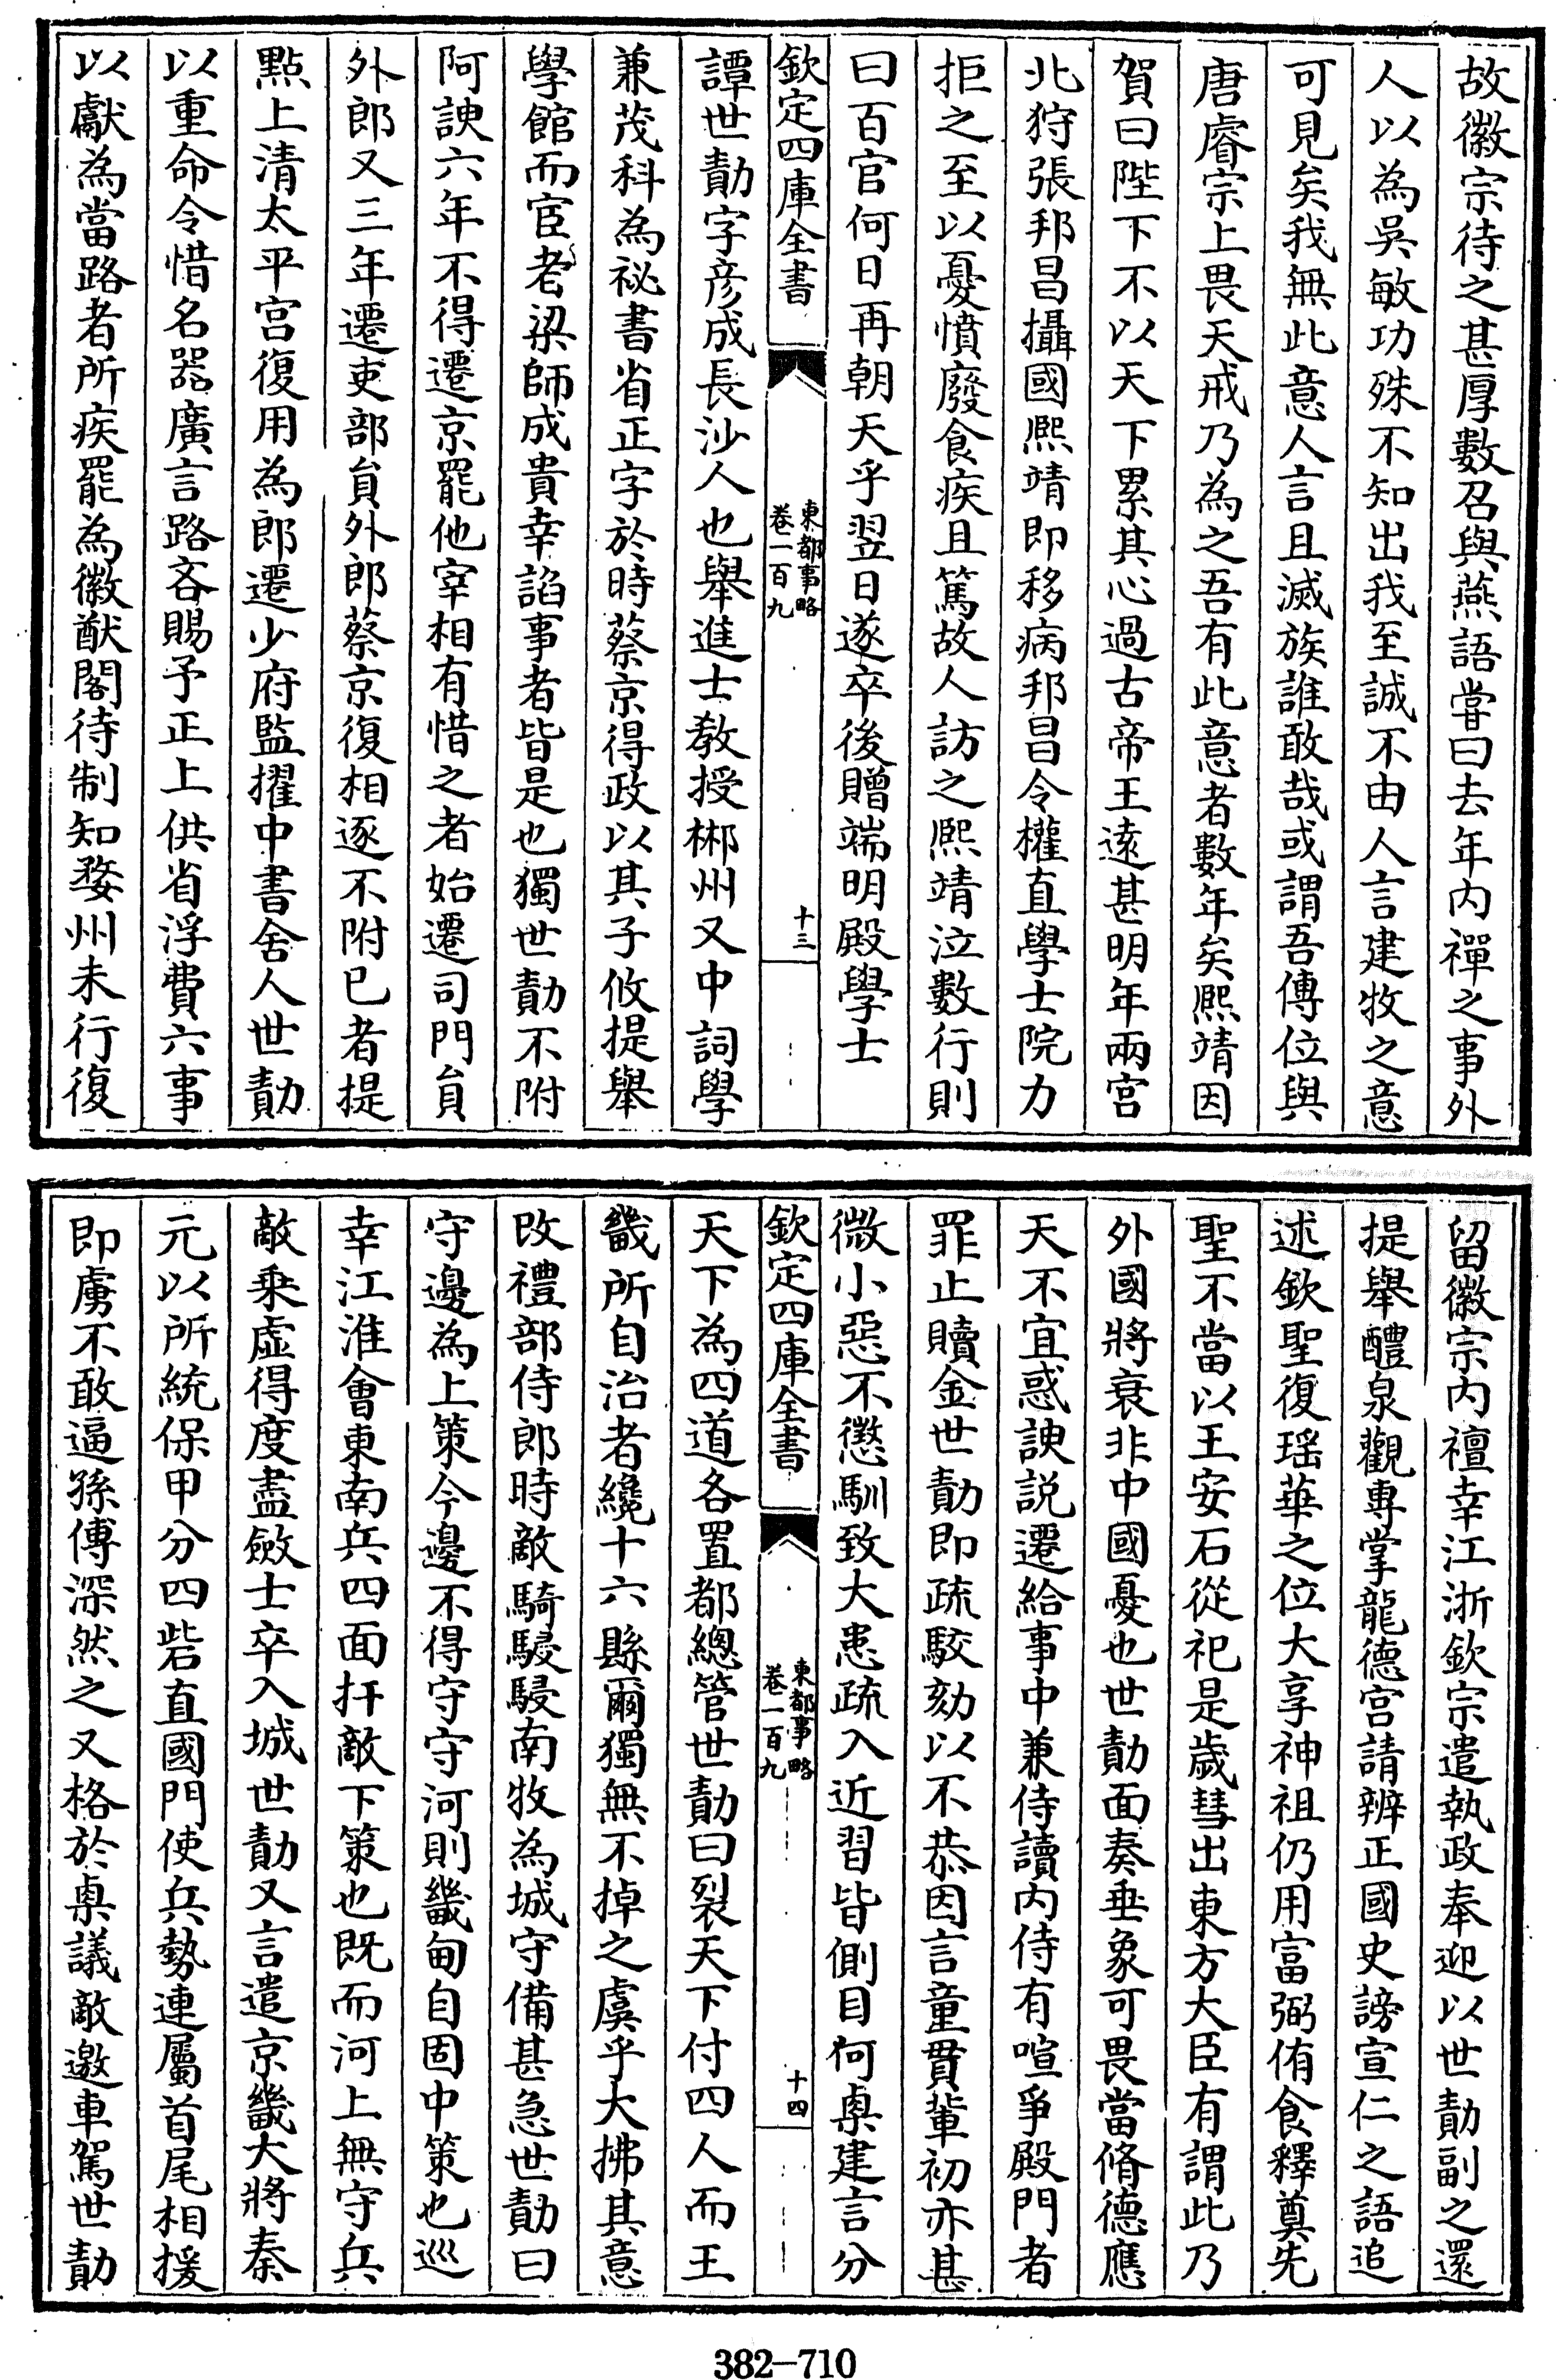 故徽宗待之甚厚數召與燕語嘗曰去年内禪之事外
人以為吳敏功殊不知出我至誠不由人言建牧之意
可見矣我無此意人言且滅族誰敢哉或謂吾傳位與
唐睿宗上畏天戒乃為之吾有此意者數年矣熙靖因
賀曰陛下不以天下累其心過古帝王遠甚明年兩宫
北狩張邦昌攝國熙靖即移病邦昌令權直學士院力
拒之至以憂憤廢食疾且篤故人訪之熙靖泣數行則
曰百官何日再朝天乎翌日遂卒後贈端明殿學士
欽定四庫全書
東都事略
卷一百九
十三
譚世勣字彦成長沙人也舉進士教授郴州又中詞學
兼茂科為祕書省正字於時蔡京得政以其子攸提舉
學館而宦者梁師成貴幸諂事者皆是也獨世勣不附
阿諛六年不得遷京罷他宰相有惜之者始遷司門貟
外郎又三年遷吏部貟外郎蔡京復相逐不附已者提
點上清太平宫復用為郎遷少府監擢中書舍人世勣
以重命令惜名器廣言路吝賜予正上供省浮費六事
以獻為當路者所疾罷為徽猷閣待制知婺州未行復
留徽宗内禪幸江浙欽宗遣執政奉迎以世勣副之還
提舉醴泉觀專掌龍德宫請辨正國史謗宣仁之語追
述欽聖復瑶華之位大享神祖仍用富弼侑食釋奠先
聖不當以王安石從祀是歲彗出東方大臣有謂此乃
外國將衰非中國憂也世勣面奏垂象可畏當脩德應
天不宜惑諛説遷給事中兼侍讀内侍有喧爭殿門者
罪止贖金世勣即疏駮劾以不恭因言童貫軰初亦甚
微小惡不懲馴致大患疏入近習皆側目何㮚建言分
欽定四庫全書
東都事略
卷一百九
十四
天下為四道各置都總管世勣曰裂天下付四人而王
畿所自治者纔十六縣爾獨無不掉之虞乎大拂其意
改禮部侍郎時敵騎駸駸南牧為城守備甚急世勣曰
守邊為上策今邊不得守守河則畿甸自固中策也巡
幸江淮會東南兵四面扞敵下策也既而河上無守兵
敵乗虚得度盡斂士卒入城世勣又言遣京畿大將秦
元以所統保甲分四砦直國門使兵勢連屬首尾相援
即虜不敢逼孫傅深然之又格於㮚議敵邀車駕世勣
382-710